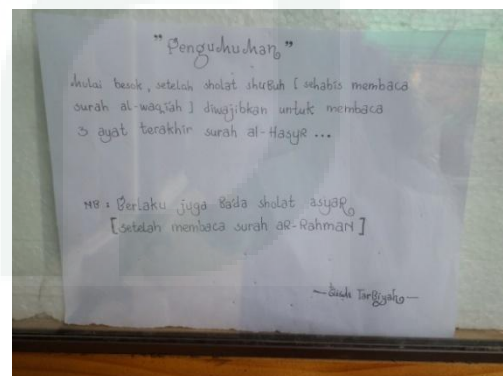 " Pengumuman "
Mulai besok, setelah sholat shubuh [ sehabis membaca
surah al-waqi'ah ] diwajibkan untuk membaca
3 ayat terakhir surah al-Hasyr ...
NB : Berlaku juga Ba'da sholat asyar
[ setelah membaca surah aR-Rahman ]
Tarbiyah